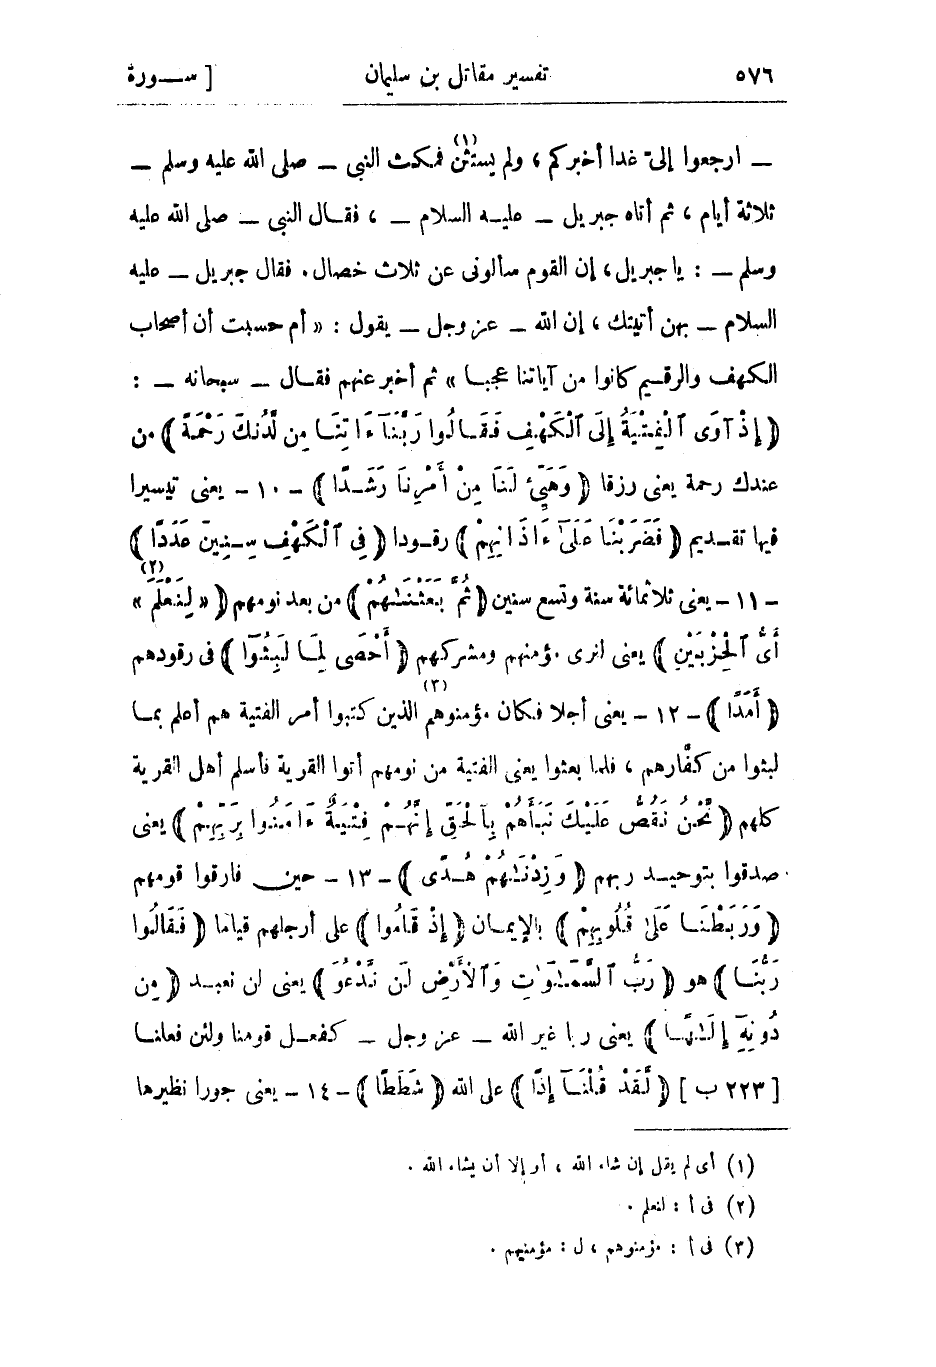 ٥٧٦ تفسير مقاتل بن سليمان [ ســورة
ــ ارجعوا إلىّ غدا أخبركم ، ولم يستثن (١) فمكث النبى ــ صلى الله عليه وسلم ــ
ثلاثة أيام ، ثم أتاه جبريل ــ عليــه السلام ــ ، فقــال النبى ــ صلى الله عليه
وسلم ــ : يا جبريل، إن القوم سألونى عن ثلاث خصال. فقال جبريل ــ عليه
السلام ــ بهن أتيتك ، إن الله ــ عز وجل ــ يقول : « أم حسبت أن أصحاب
الكهف والرقــيم كانوا من آياتنا عجبــا » ثم أخبر عنهم فقــال ــ سبحانه ــ :
﴿ إِذْ أَوَى ٱلْفِتْيَةُ إِلَى ٱلْكَهْفِ فَقَــالُوا رَبَّنَآ ءَاتِنَــا مِن لَّدُنكَ رَحْمَةً ﴾ من
عندك رحمة يعنى رزقا ﴿ وَهَيِّئْ لَنَا مِنْ أَمْرِنَا رَشَــدًا ﴾ ــ ١٠ ــ يعنى تيسيرا
فيها تقــديم ﴿ فَضَرَبْنَا عَلَىٰٓ ءَاذَانِهِمْ ﴾ رقــودا ﴿ فِى ٱلْكَهْفِ سِــنِينَ عَدَدًا ﴾
ــ ١١ ــ يعنى ثلاثمائة سنة وتسع سنين ﴿ ثُمَّ بَعَثْنَـٰهُمْ ﴾ من بعد نومهم ﴿ « لِنَعْلَمَ » (٢)
أَىُّ ٱلْحِزْبَيْنِ ﴾ يعنى لنرى مؤمنهم ومشركهم ﴿ أَحْصَى لِمَــا لَبِثُوٓا ﴾ فى رقودهم
﴿ أَمَدًا ﴾ ــ ١٢ ــ يعنى أجلا فكان مؤمنوهم (٣) الذين كتبوا أمر الفتية هم أعلم بمــا
لبثوا من كفّارهم ، فلما بعثوا يعنى الفتية من نومهم أتوا القرية فأسلم أهل القرية
كلهم ﴿ نَّحْنُ نَقُصُّ عَلَيْكَ نَبَأَهُم بِٱلْحَقِّ إِنَّهُــمْ فِتْيَةٌ ءَامَنُوا بِرَبِّهِــمْ ﴾ يعنى
صدقوا بتوحيــد ربهم ﴿ وَزِدْنَـٰهُمْ هُــدًى ﴾ ــ ١٣ ــ حين فارقوا قومهم
﴿ وَرَبَطْنَــا عَلَىٰ قُلُوبِهِمْ ﴾ بالإيمــان ﴿ إِذْ قَامُوا ﴾ على أرجلهم قياما ﴿ فَقَالُوا
رَبُّنَــا ﴾ هو ﴿ رَبُّ ٱلسَّمَـٰوَٰتِ وَٱلْأَرْضِ لَن نَّدْعُوَ ﴾ يعنى لن نعبــد ﴿ مِن
دُونِهِٓ إِلَـٰهًــا ﴾ يعنى ربا غير الله ــ عز وجل ــ كفعــل قومنا ولئن فعلنــا
[ ٢٢٣ ب ] ﴿ لَّقَدْ قُلْنَــآ إِذًا ﴾ على الله ﴿ شَطَطًا ﴾ ــ ١٤ ــ يعنى جورا نظيرها
(١) أى لم يقل إن شاء الله ، أو إلا أن يشاء الله .
(٢) فى أ : لنعلم .
(٣) فى أ : مؤمنوهم ، ل : مؤمنيهم .